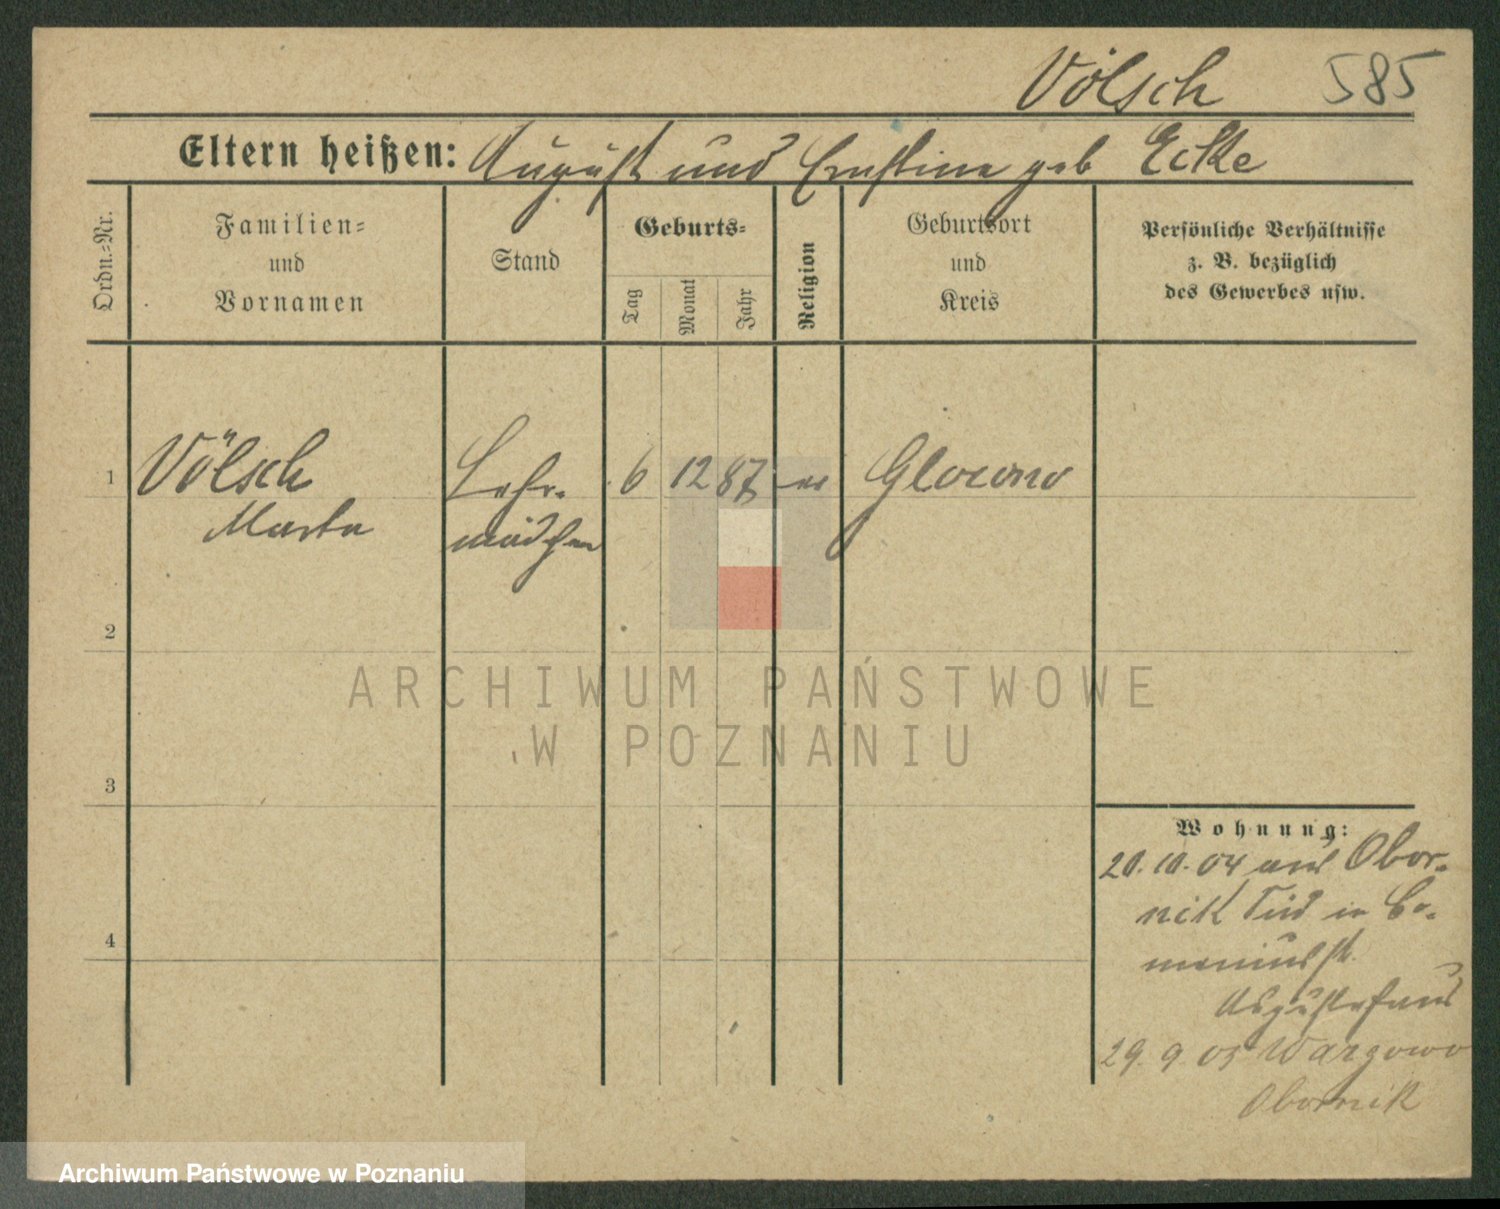 Völsch 585
Eltern heißen: August und Ernstine geb Ecke
Ordn.=Nr.
Familien=
und
Vornamen
Stand
Geburts=
Tag
Monat
Jahr
Religion
Geburtsort
und
Kreis
Persönliche Verhältnisse
z. B. bezüglich
des Gewerbes usw.
1 Völsch Lehr- 6 12 87 ev
Marta mädchen
2
ARCHIWUM PAŃSTWOWE
W POZNANIU
3
Wohnung:
20.10.04 aus Obor-
nik
4
29.9.05 Wargowo
Obornik
Archiwum Państwowe w Poznaniu